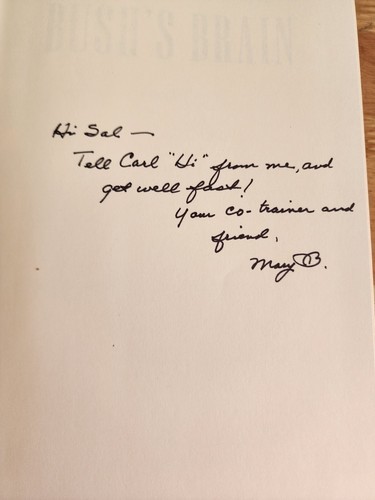 BUSH'S BRAIN
Hi Sal —
Tell Carl "Hi" from me, and
get well fast!
Your co-trainer and
friend,
Mary B.